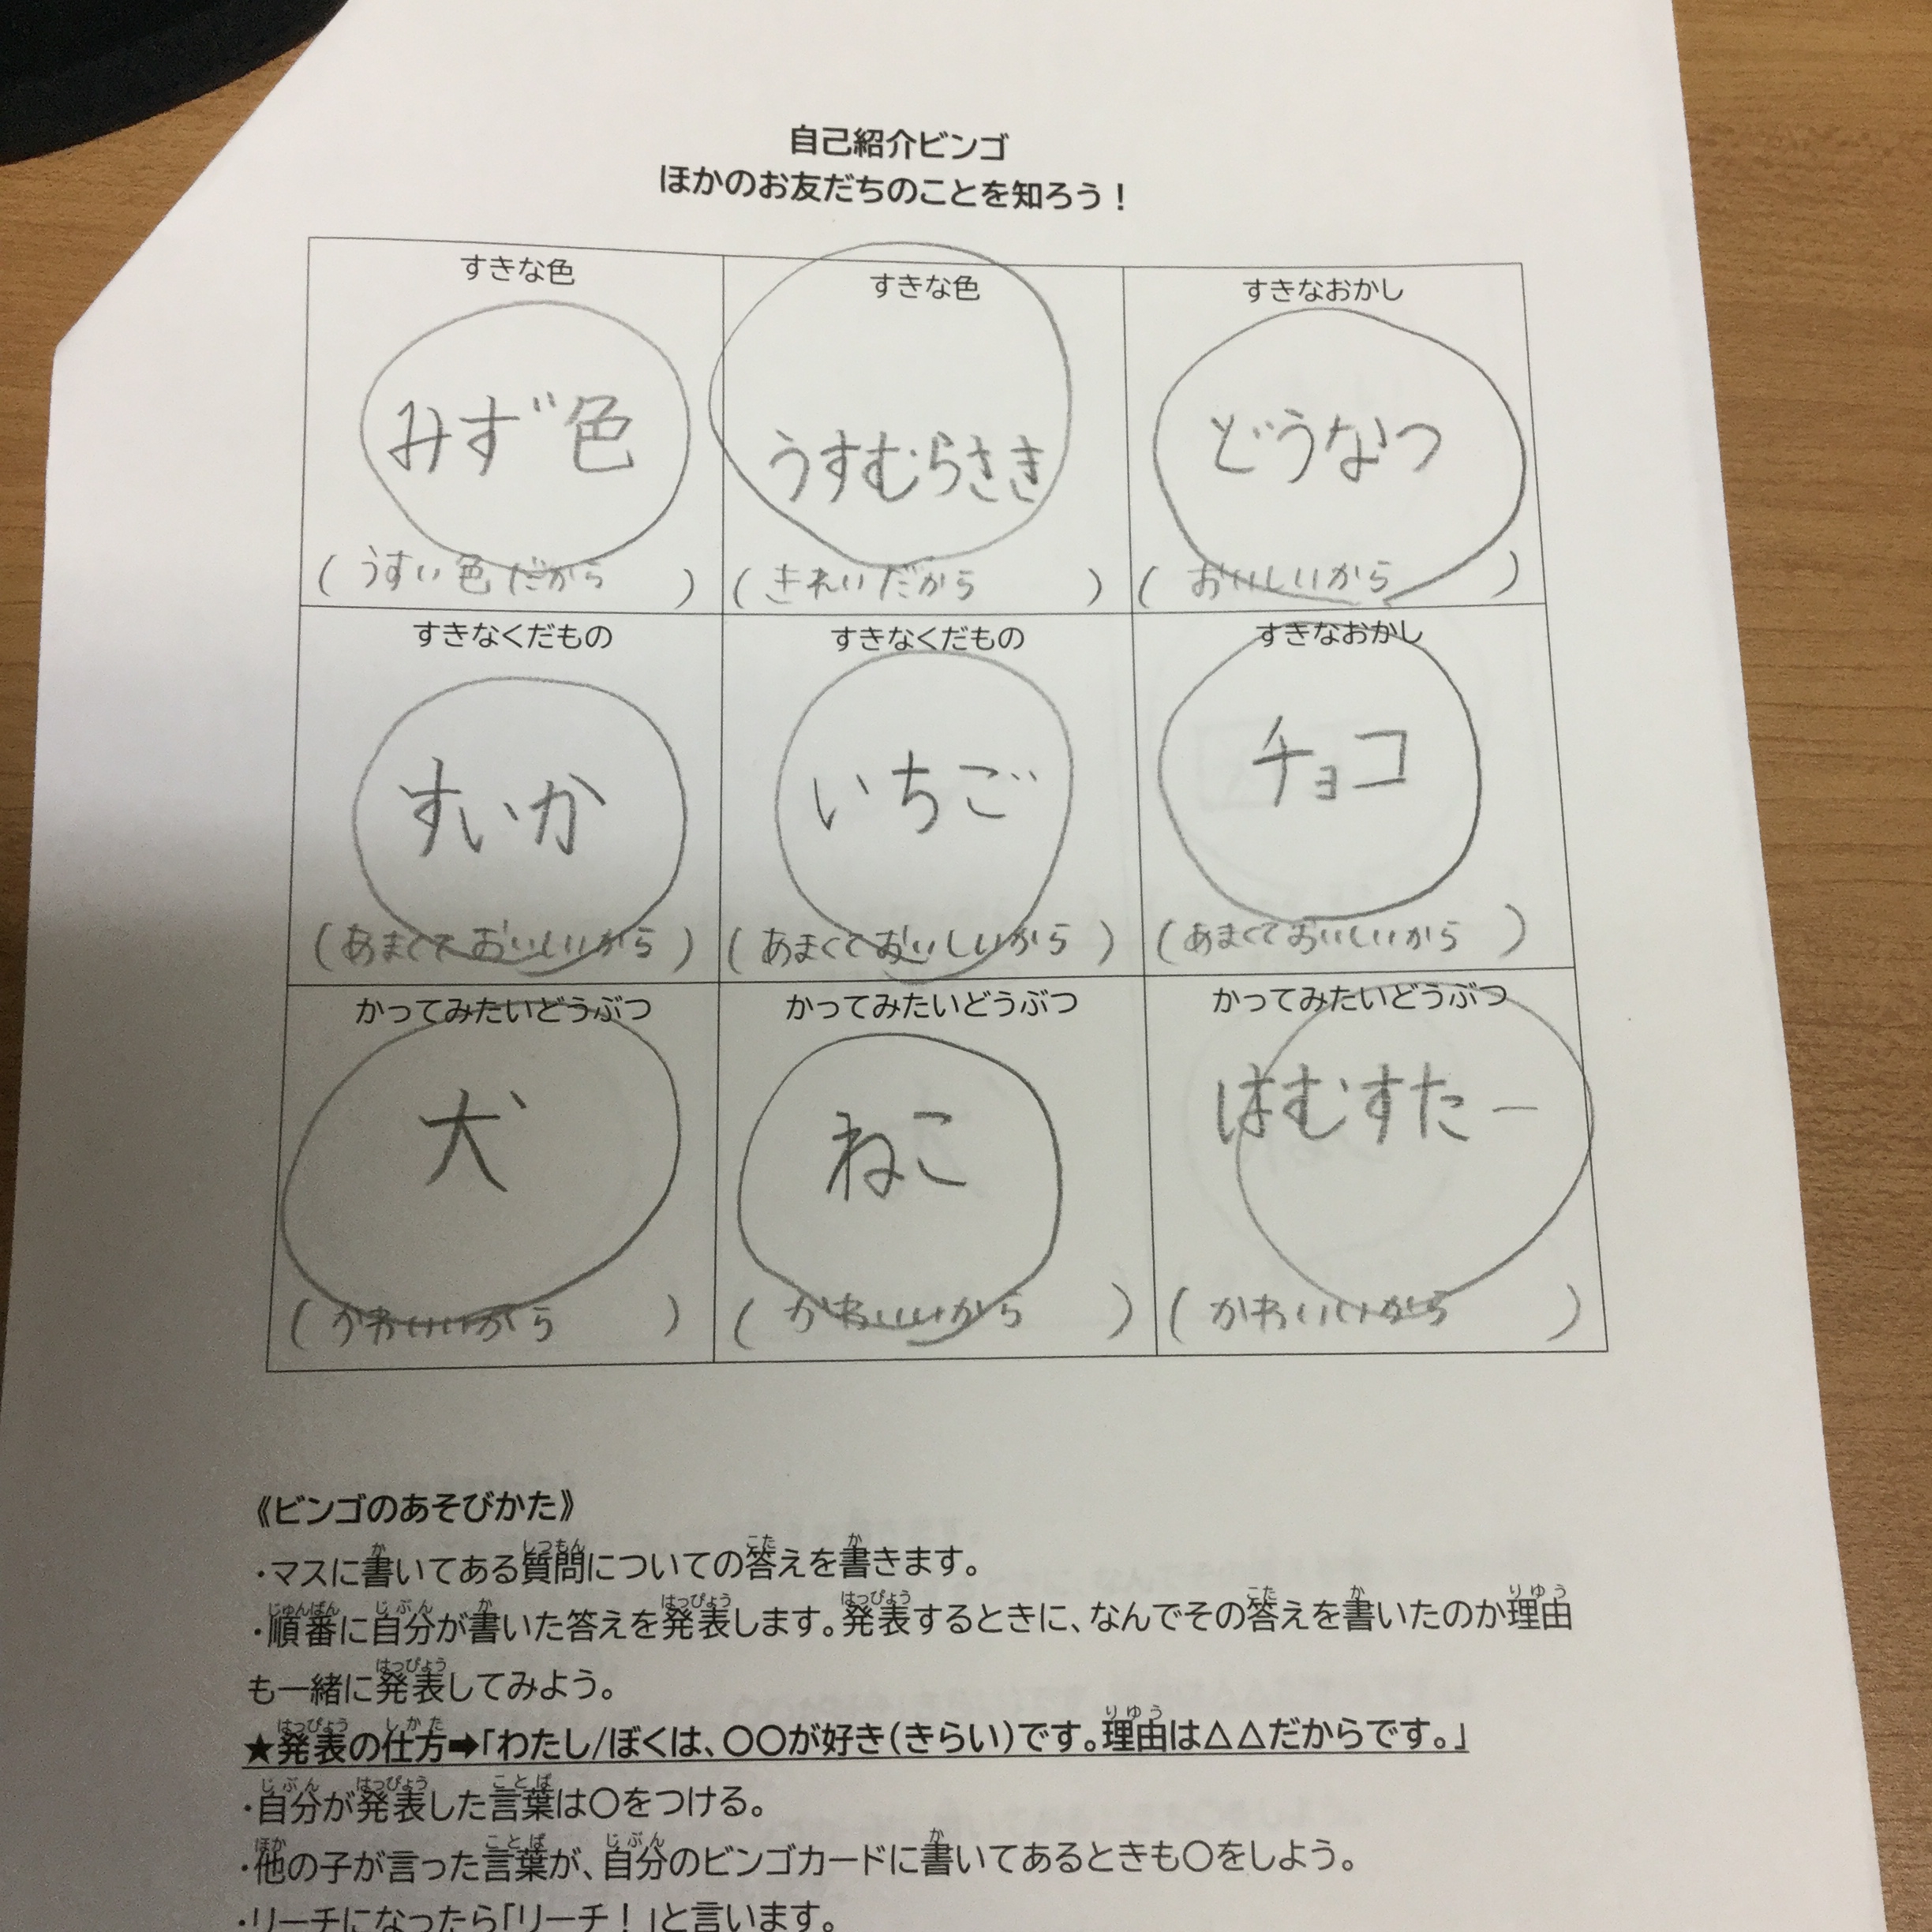 自己紹介ビンゴ
ほかのお友だちのことを知ろう！
すきな色
みず色
(うすい色だから)
すきな色
うすむらさき
(きれいだから)
すきなおかし
どうなつ
(おいしいから)
すきなくだもの
すいか
(あまくておいしいから)
すきなくだもの
いちご
(あまくておいしいから)
すきなおかし
チョコ
(あまくておいしいから)
かってみたいどうぶつ
犬
(かわいいから)
かってみたいどうぶつ
ねこ
(かわいいから)
かってみたいどうぶつ
はむすたー
(かわいいから)
《ビンゴのあそびかた》
・マスに書いてある質問についての答えを書きます。
・順番に自分が書いた答えを発表します。発表するときに、なんでその答えを書いたのか理由
も一緒に発表してみよう。
★発表の仕方➡「わたし/ぼくは、〇〇が好き(きらい)です。理由は△△だからです。」
・自分が発表した言葉は〇をつける。
・他の子が言った言葉が、自分のビンゴカードに書いてあるときも〇をしよう。
・リーチになったら「リーチ！」と言います。